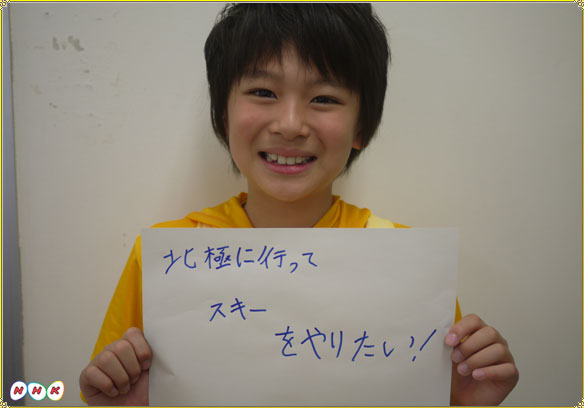 北極に行って
スキー
をやりたい!
NHK